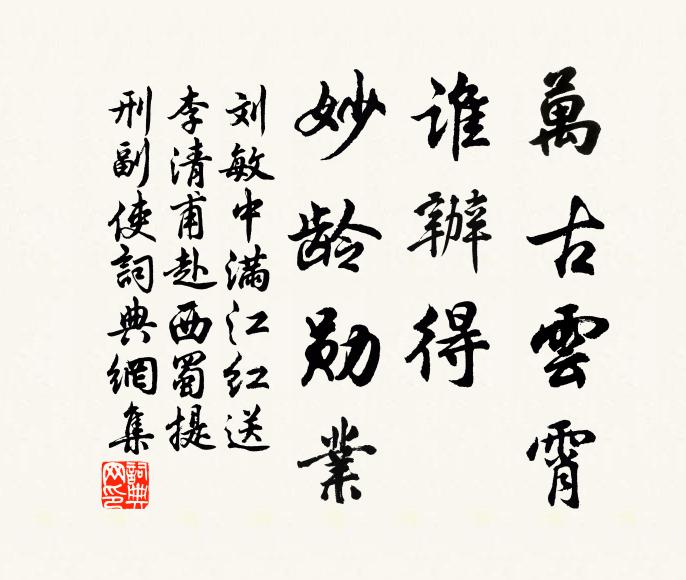 萬古雲霄
誰辦得
妙龄勛業
刘敏中满江红送
李清甫赴西蜀提
刑副使詞典網集
詞典网印